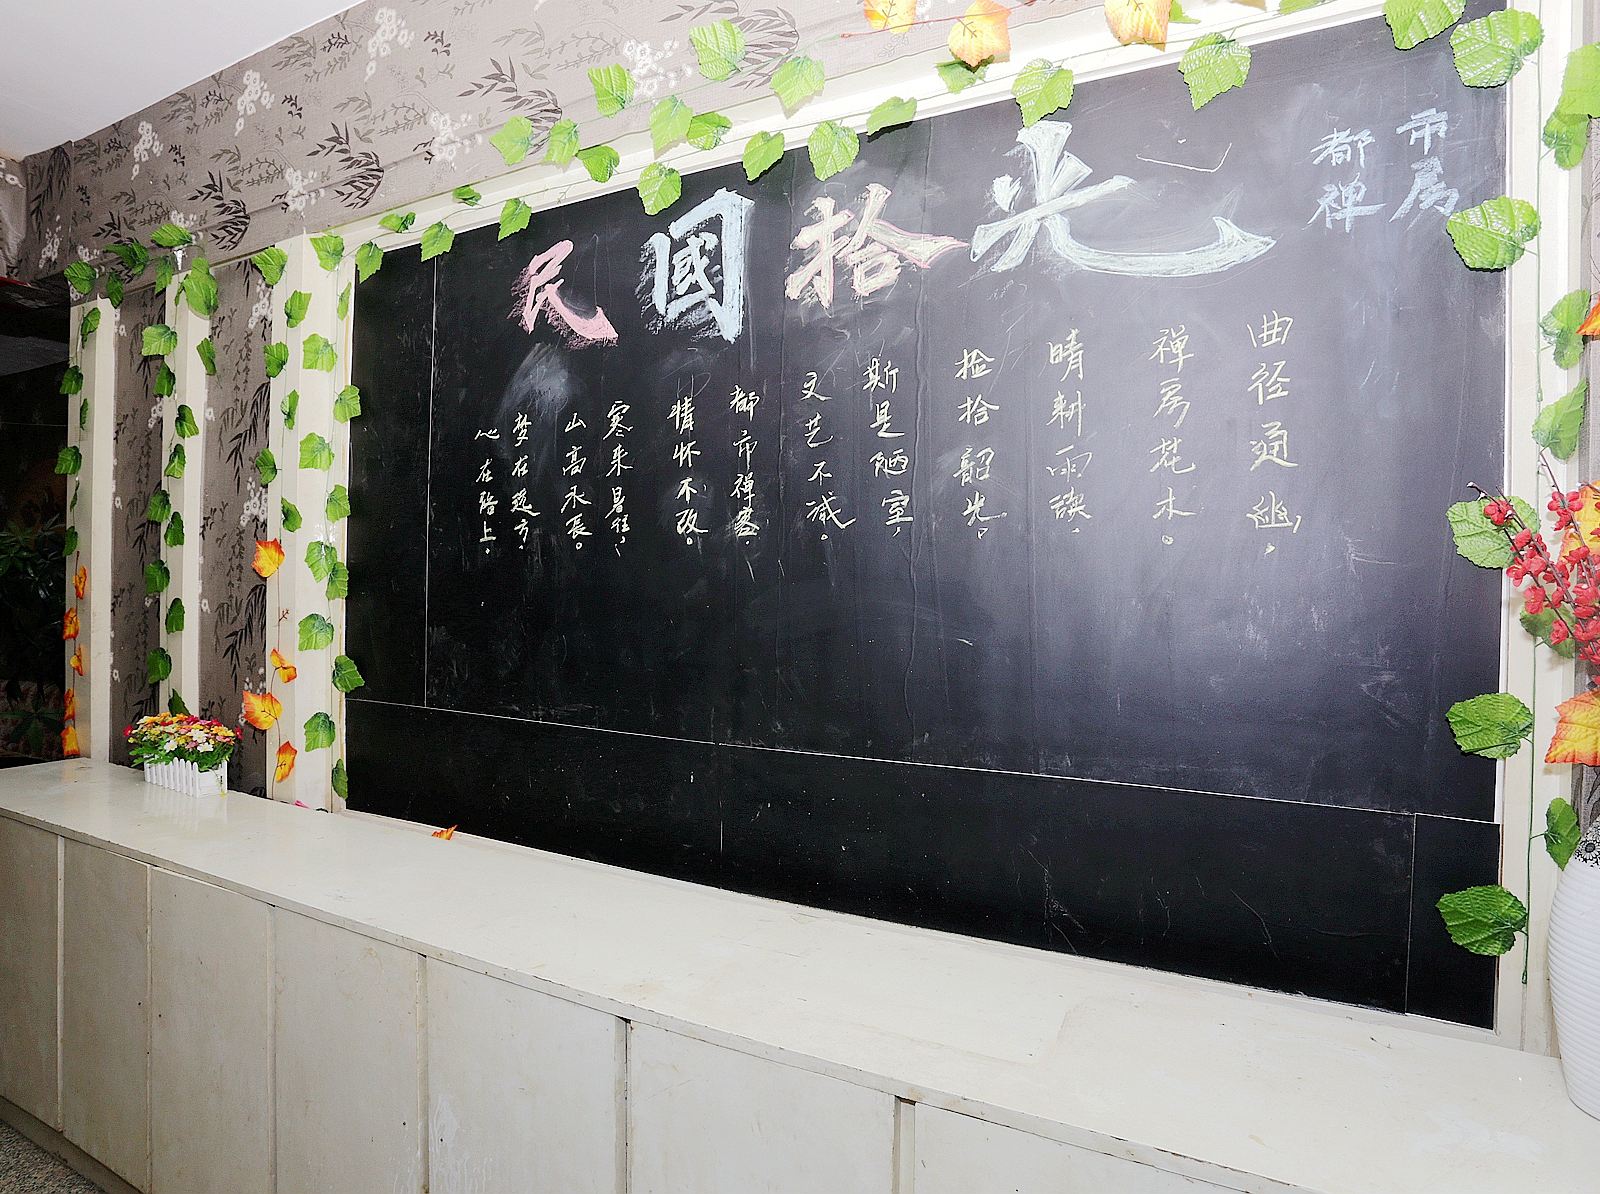 民國拾光
都市
禅房
曲径通幽，
禅房花木。
晴耕雨读，
捡拾韶光。
斯是陋室，
文艺不减。
都市禅
情怀不改。
寒来暑往，
山高水長。
梦在远方，
心在路上。